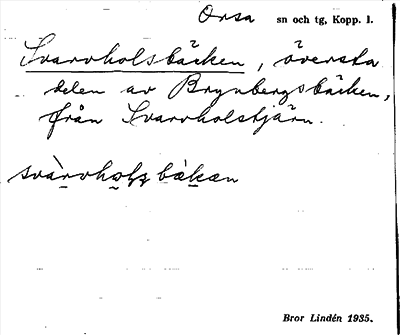 Orsa sn och tg, Kopp. l.
Svarvholsbäcken, översta
delen av Brynbergsbäcken,
från Svarvholstjärn.
svàrvhol̥s̥bäkan
Bror Lindén 1935.